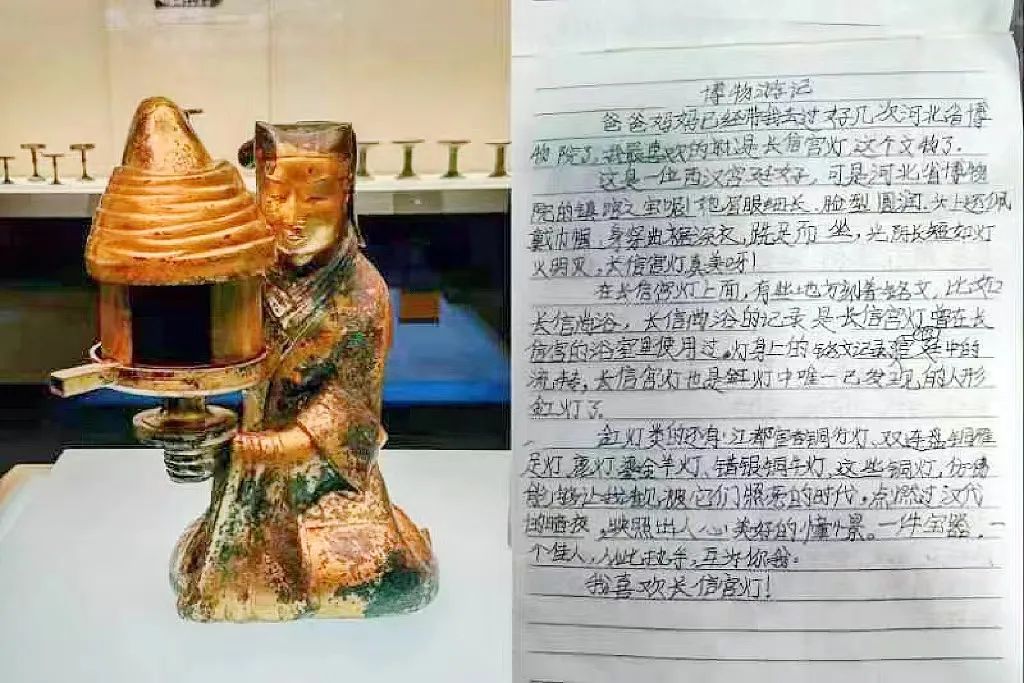 博物游记
爸爸妈妈已经带我去过好几次河北省博
物院了,我最喜欢的就是长信宫灯这个文物了。
这是一位西汉宫廷女子,可是河北省博物
院的镇院之宝喔!她眉眼细长、脸型圆润,头上还佩
戴巾帼,身穿曲裾深衣,跣足而坐,光阴长短如灯
火明灭,长信宫灯真美呀!
在长信宫灯上面,有些地方刻着铭文,比如
长信尚浴,长信尚浴的记录是长信宫灯曾在长
信宫的浴室里使用过。灯身上的铭文记录宫中的
流转,长信宫灯也是釭灯中唯一已发现的人形
釭灯了。
釭灯类的还有:江都宦者铜行灯、双连盘铜雁
足灯、鎏金羊灯、错银铜牛灯,这些铜灯,仿佛
能够让我们被它们照亮的时代,点燃过汉代
的暗夜,映照出人心美好的憧憬。一件宝器,一
个佳人,
我喜欢长信宫灯!